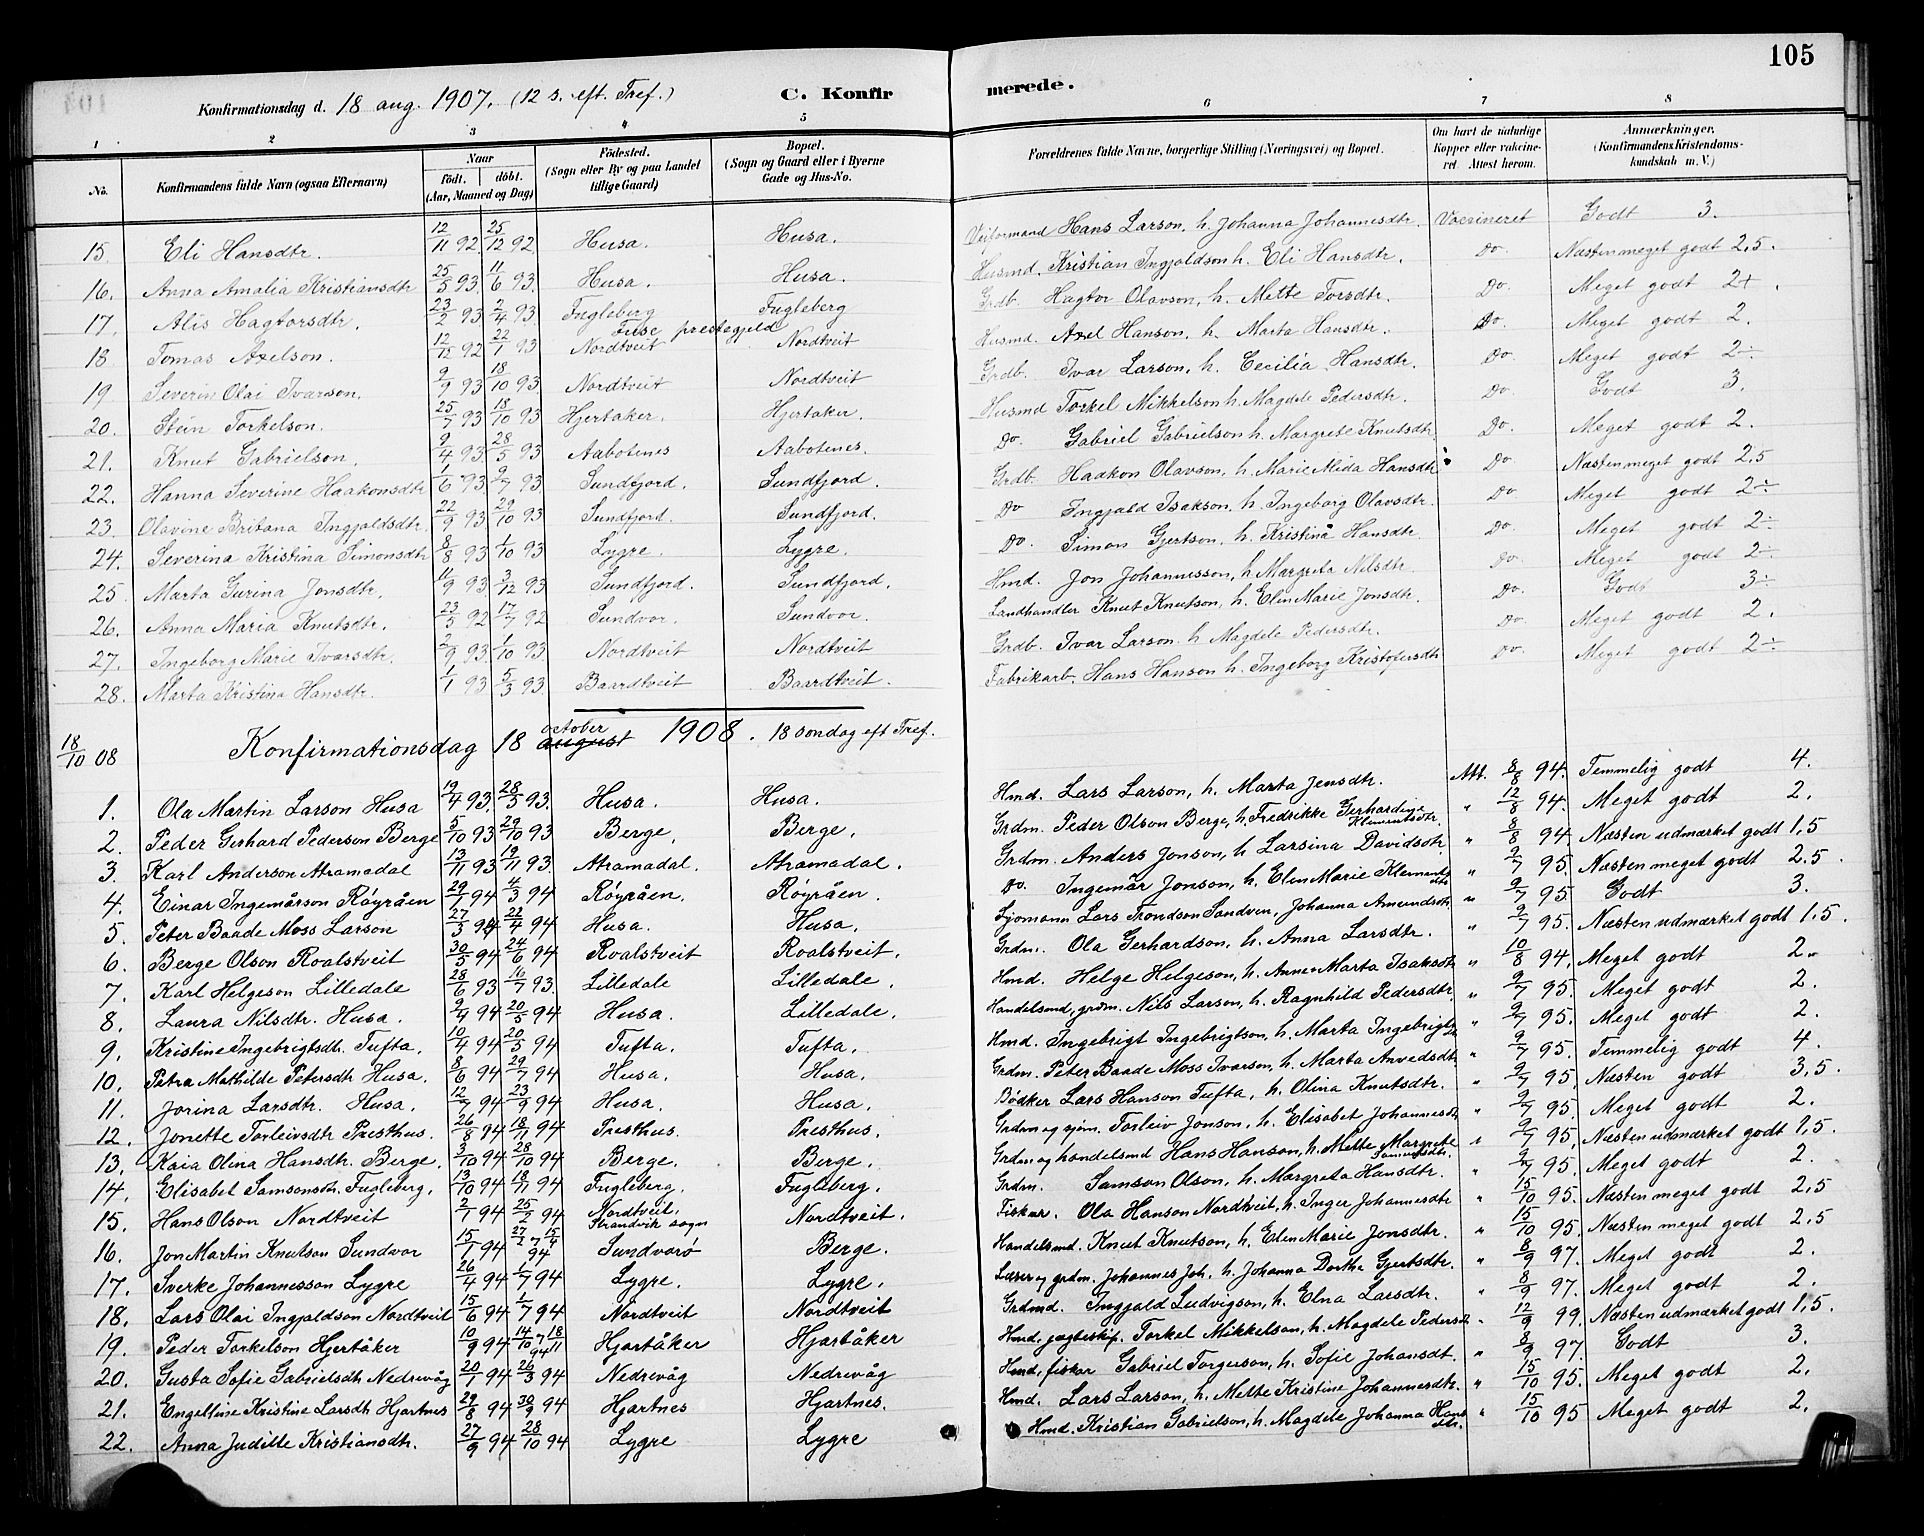 105
Konfirmationsdag d. 18 aug. 1907. (12 s. eft. Tref.) C. Konfirmerede.
1 2 3 4 5 6 7 8
No. Konfirmandens fulde Navn (ogsaa Efternavn) Naar födt. döbt. (Aar, Maaned og Dag) Födested. (Sogn eller By og paa Landet tillige Gaard) Bopæl. (Sogn og Gaard eller i Byerne Gade og Hus-No. Forældrenes fulde Navne, borgerlige Stilling (Næringsvei) og Bopæl. Om havt de naturlige Kopper eller vakcineret. Attest herom. Anmærkninger. (Konfirmandens Kristendomskundskab m. V.)
15. Eli Hansdtr. 12/11 92 25/12 92 Husa. Husa. Veiformand Hans Larson, h. Johanna Johannesdtr. Vaccineret Godt 3.
16. Anna Amalia Kristiansdtr 25/5 93. 11/6 93. Husa. Husa. Husmd. Kristian Ingjaldson h. Eli Hansdtr. Do Næsten meget godt 2,5.
17. Alis Hagtorsdtr. 23/2 93 2/4 93. Fugleberg Fugleberg Grdb. Hagtor Olavson, h. Mette Torsdtr. Do. Meget godt 2+.
18 Tomas Axelson. 12/12 92 22/1 93 Fuse prestegjeld Nordtveit Nordtveit Husmd. Axel Hanson, h. Marta Hansdtr. Do. Meget godt 2.
19. Severin Olai Ivarson. 9/9 93 18/10 93. Nordtveit Nordtveit Grdb. Ivar Larson, h. Cecilia Hansdtr. Do Meget godt 2÷
20. Stein Torkelson. 25/7 93 18/10 93 Hjertaker. Hjertaker. Husmd Torkel Mikkelson h. Magdele Pedersdtr. Do Godt 3.
21. Knut Gabrielson. 9/4 93. 28/5 93 Aabotenes Aabotenes. Do. Gabriel Gabrielson h. Margrete Knutsdtr. Do. Meget godt 2.
22. Hanna Severine Haakonsdtr 1/6 93 9/7 93. Sundfjord. Sundfjord. Grdb. Haakon Olavson, h. Marie Alida Hansdtr Do Næsten meget godt 2,5
23. Olavine Britana Ingjaldsdtr. 22/9 93 29/10 93 Sundfjord. Sundfjord. Do Ingjald Isakson, h. Ingeborg Olavsdtr. Do Meget godt 2÷
24. Severina Kristina Simonsdtr 8/8 93 1/10 93. Lygre. Lygre. Do. Simon Gjertson, h. Kristina Hansdtr Do. Meget godt 2÷
25. Marta Gurina Jonsdtr. 11/9 93 3/12 93 Sundfjord. Sundfjord. Hmd. Jon Johannesson, h. Margreta Nilsdtr. Do Meget godt 2÷
26. Anna Maria Knutsdtr. 23/5 92 17/7 92 Sundvor. Sundvor. Landhandler Knut Knutson, h. Elen Marie Jonsdtr. Do. Godt 3÷
27. Ingeborg Marie Ivarsdtr. 2/9 93. 1/10 93. Nordtveit Nordtveit Grdb. Ivar Larson h. Magdele Pedersdtr. Do Meget godt 2.
28. Marta Kristina Hansdtr. 1/1 93 5/3 93. Baardtveit Baardtveit. Fabrikarb. Hans Hanson h. Ingeborg Kristofersdtr Do. Meget godt 2÷
18/10 08 Konfirmationsdag 18 august october 1908. 18 søndag eft Tref.
1. Ola Martin Larson Husa 19/4 93. 28/5 93. Husa. Husa. Hmd. Lars Larson, h. Marta Jensdtr. Att. 8/8 94. Temmelig godt 4.
2. Peder Gerhard Pederson Berge 5/10 93 29/10 93 Berge, Berge, Grdm. Peder Olson Berge, h. Fredrikke Gerhardine Klementsdtr. " 12/8 94. Meget godt 2.
3. Karl Anderson Atramadal 13/11 93 19/11 93. Atramadal. Atramadal. Grdm. Anders Jonson, h. Larsina Davidsdtr. " 8/8 94. Næsten udmærket godt 1,5
4. Einar Ingemårson Røyråen 29/1 94 4/3 94 Røyråen. Røyråen. Do. Ingemår Jonson, h. Elen Marie Klementsdtr " 9/7 95. Næsten meget godt 2,5.
5. Peter Baade Moss Larson 27/3 94 22/4 94 Husa. Husa. Sjømann Lars Trondson Sandven, Johanna Amundsdtr " 9/7 95. Godt 3.
6. Berge Olson Roalstveit 30/5 94 24/6 94 Roalstveit Roalstveit. Grdm. Ola Gerhardson, h. Anna Larsdtr. " 9/7 95. Næsten udmærket godt 1,5.
7. Karl Helgeson Lilledale 28/6 93 16/7 93. Lilledale Lilledale. Hmd. Helge Helgeson, h. Anne Marta Isaksdtr " 10/8 94. Meget godt 2.
8. Laura Nilsdtr. Husa. 9/4 94 20/5 94 Husa. Lilledale. Handelsmd, grdm. Nils Larson, h. Ragnhild Pedersdtr. " 9/7 95. Meget godt 2.
9. Kristine Ingebrigtsdtr. Tufta. 10/4 94 20/5 94 Tufta. Tufta. Hmd. Ingebrigt Ingebrigtson, h. Marta Ingebrigtsdtr " 9/7 95. Meget godt 2.
10. Petra Mathilde Petersdtr Husa. 8/6 94 29/7 94 Husa. Husa. Grdm. Peter Baade Moss Ivarson, h. Marta Arvedsdtr " 9/7 95. Temmelig godt 4.
11. Jorina Larsdtr. Husa. 12/7 94 23/9 94 Husa. Husa. Bødker Lars Hanson Tufta, h. Olina Knutsdtr. " 9/7 95. Næsten godt 3,5.
12. Jonette Torleivsdtr Presthus. 26/8 94 18/11 94 Presthus. Presthus. Grdm og sjøm. Torleiv Jonson, h. Elisabet Johannesdtr " 9/7 95. Meget godt 2.
13. Kaia Olina Hansdtr. Berge. 3/10 94 28/10 94 Berge. Berge. Grdm og handelsmd Hans Hanson, h. Mette Margrete " 9/7 95. Næsten udmærket godt 1,5.
14. Elisabet Samsonsdtr. Fugleberg. 13/10 94 18/11 94 Fugleberg. Fugleberg. Grdm. Samson Olson, h. Margreta Hansdtr. " 9/7 95. Meget godt 2.
15. Hans Olson Nordtveit 2/1 94 25/2 94 Nordtveit, Strandvik sogn Nordtveit. Fisker. Ola Hanson Nordtveit, h. Inger Johannesdtr " 15/10 95. Næsten meget godt 2,5
16. Jon Martin Knutson Sundvor 15/1 94 27/2 15/4 94 Sundvorø Berge. Handelsmd. Knut Knutson, h. Elen Marie Jonsdtr. " 15/10 95. Næsten meget godt 2,5
17. Sverke Johannesson Lygre 26/4 94 1/7 94 Lygre. Lygre. Lærer og grdm. Johannes Joh. h. Johanna Dorthe Gjertsdtr. " 8/9 97. Meget godt 2.
18. Lars Olai Ingjaldson Nordtveit 15/6 94 1/7 94 Nordtveit Nordtveit Grdmd. Ingjald Ludvigson, h. Elna Larsdtr. " 8/9 97. Meget godt 2.
19. Peder Torkelson Hjertåker 10/9 94 14/10 18/11 94 Hjartåker Hjartåker Hmd, jægteskip. Torkel Mikkelson, h. Magdele Pedersdtr " 12/9 99. Næsten udmærket godt 1,5.
20. Gusta Sofie Gabrielsdtr Nedrevåg 20/1 94 26/3 94 Nedrevåg Nedrevåg Hmd, fisker Gabriel Torgerson, h. Sofie Johansdt. " 8/9 97. Godt 3.
21. Engeltine Kristine Larsdtr. Hjartnes 29/8 94 30/9 94 Hjartnes Hjartnes. Hmd. Lars Larson, h. Mette Kristine Johannesdtr. " 15/10 95. Meget godt 2.
22. Anna Juditte Kristiansdtr. 27/9 94 28/10 94 Lygre Lygre Hmd. Kristian Gabrielson, h. Magdele Johanna Hansdtr. " 15/10 95 Meget godt 2.